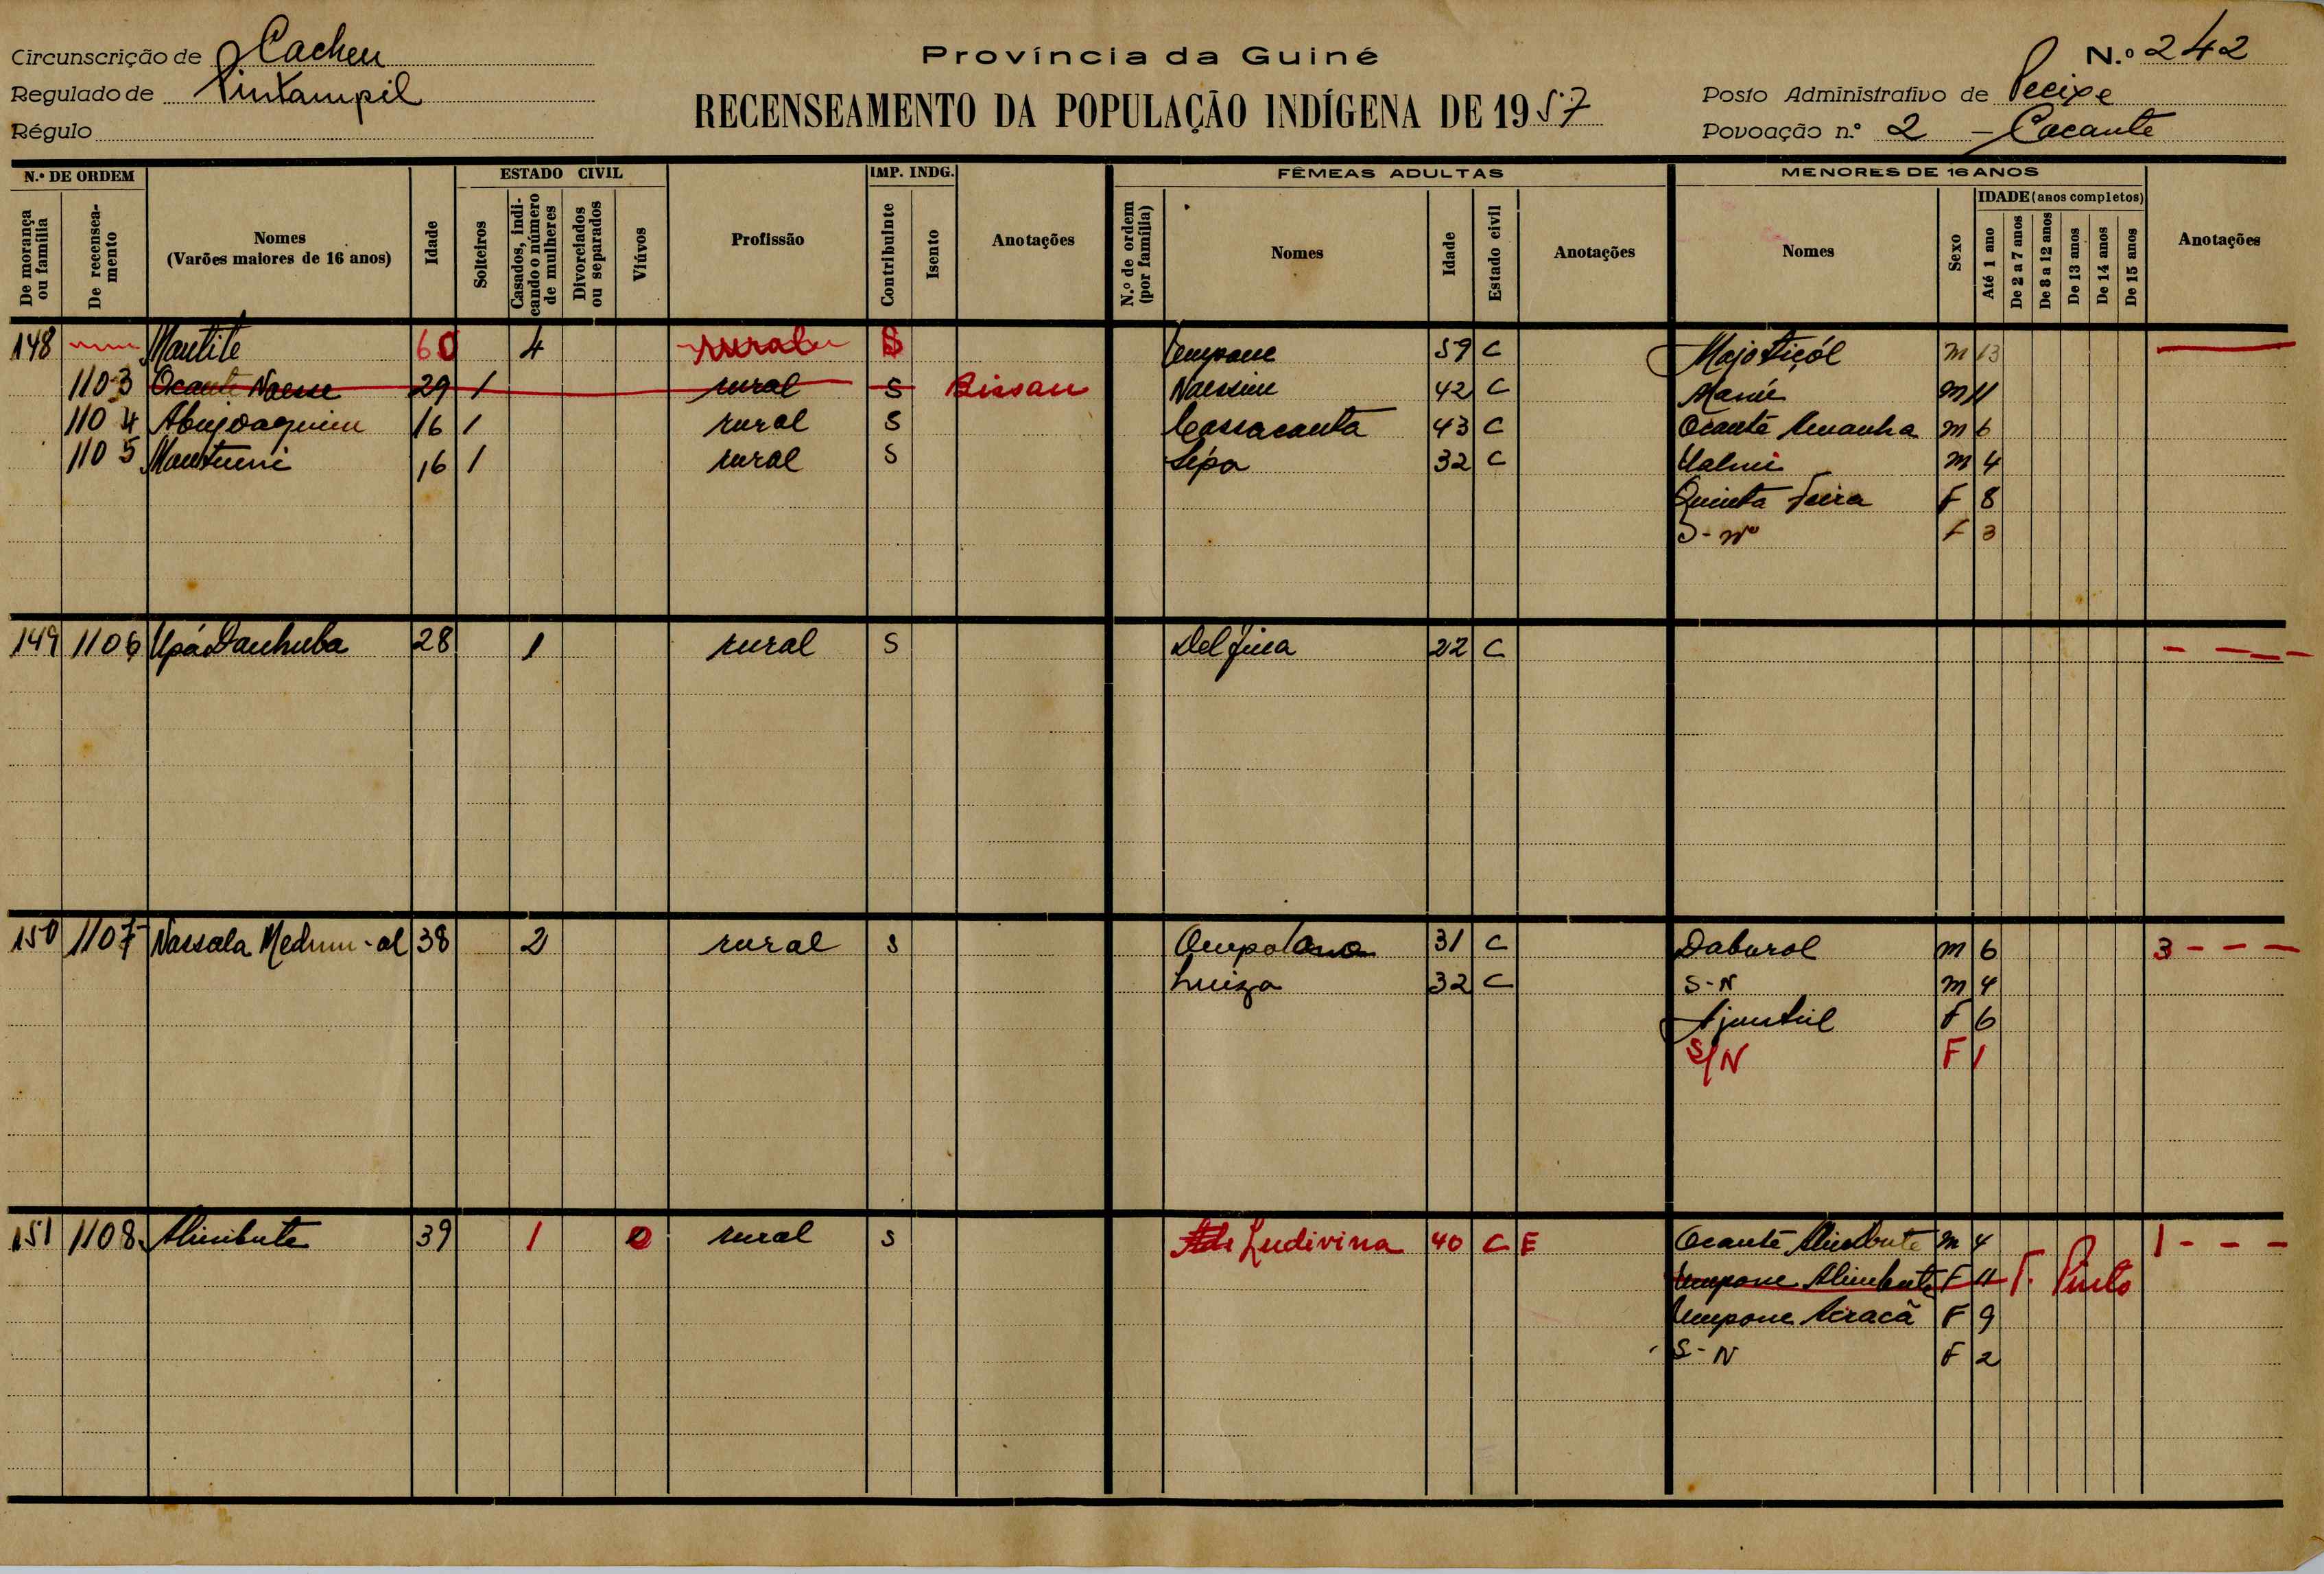 Província da Guiné
Circunscrição de Cacheu
N.º 242
Regulado de Pintampil
RECENSEAMENTO DA POPULAÇÃO INDÍGENA DE 1957
Posto Administrativo de Pecixe
Régulo
Povoação n.º 2 - Cacante
N.º DE ORDEM
ESTADO CIVIL
IMP. INDG.
FÊMEAS ADULTAS
MENORES DE 16 ANOS
De morança ou família
De recensea-mento
Nomes
(Varões maiores de 16 anos)
Idade
Solteiros
Casados, indi-cando o número de mulheres
Divorciados ou separados
Viúvos
Profissão
Contribuinte
Isento
Anotações
N.º de ordem (por família)
Nomes
Idade
Estado civil
Anotações
Nomes
Sexo
IDADE (anos completos)
Até 1 ano
De 2 a 7 anos
De 8 a 12 anos
De 13 anos
De 14 anos
De 15 anos
Anotações
148 Mantite 60 4 rural S Umpane 59 C m 13
1103 Ocante Naesse 29 1 rural S Bissau Naessim 42 C Manú m 11
1104 Abujoaquim 16 1 rural S Cassacanta 43 C Ocantê m 6
1105 Mantumi 16 1 rural S Sépa 32 C Ualmi m 4
Quinta Feira F 8
S-Nº F 3
149 1106 Upá Danhuba 28 1 rural S Delfina 22 C - - - -
150 1107 Nassala 38 2 rural S 31 C Daburol m 6 3 - - -
Luiza 32 C S-N m 4
F 6
S/N F 1
151 1108 Alimbute 39 1 0 rural S Ludivina 40 C E Ocantê Alimbute m 4 1 - - -
Umpone Alimbute F 11 F. Pinto
Umpone F 9
S-N F 2